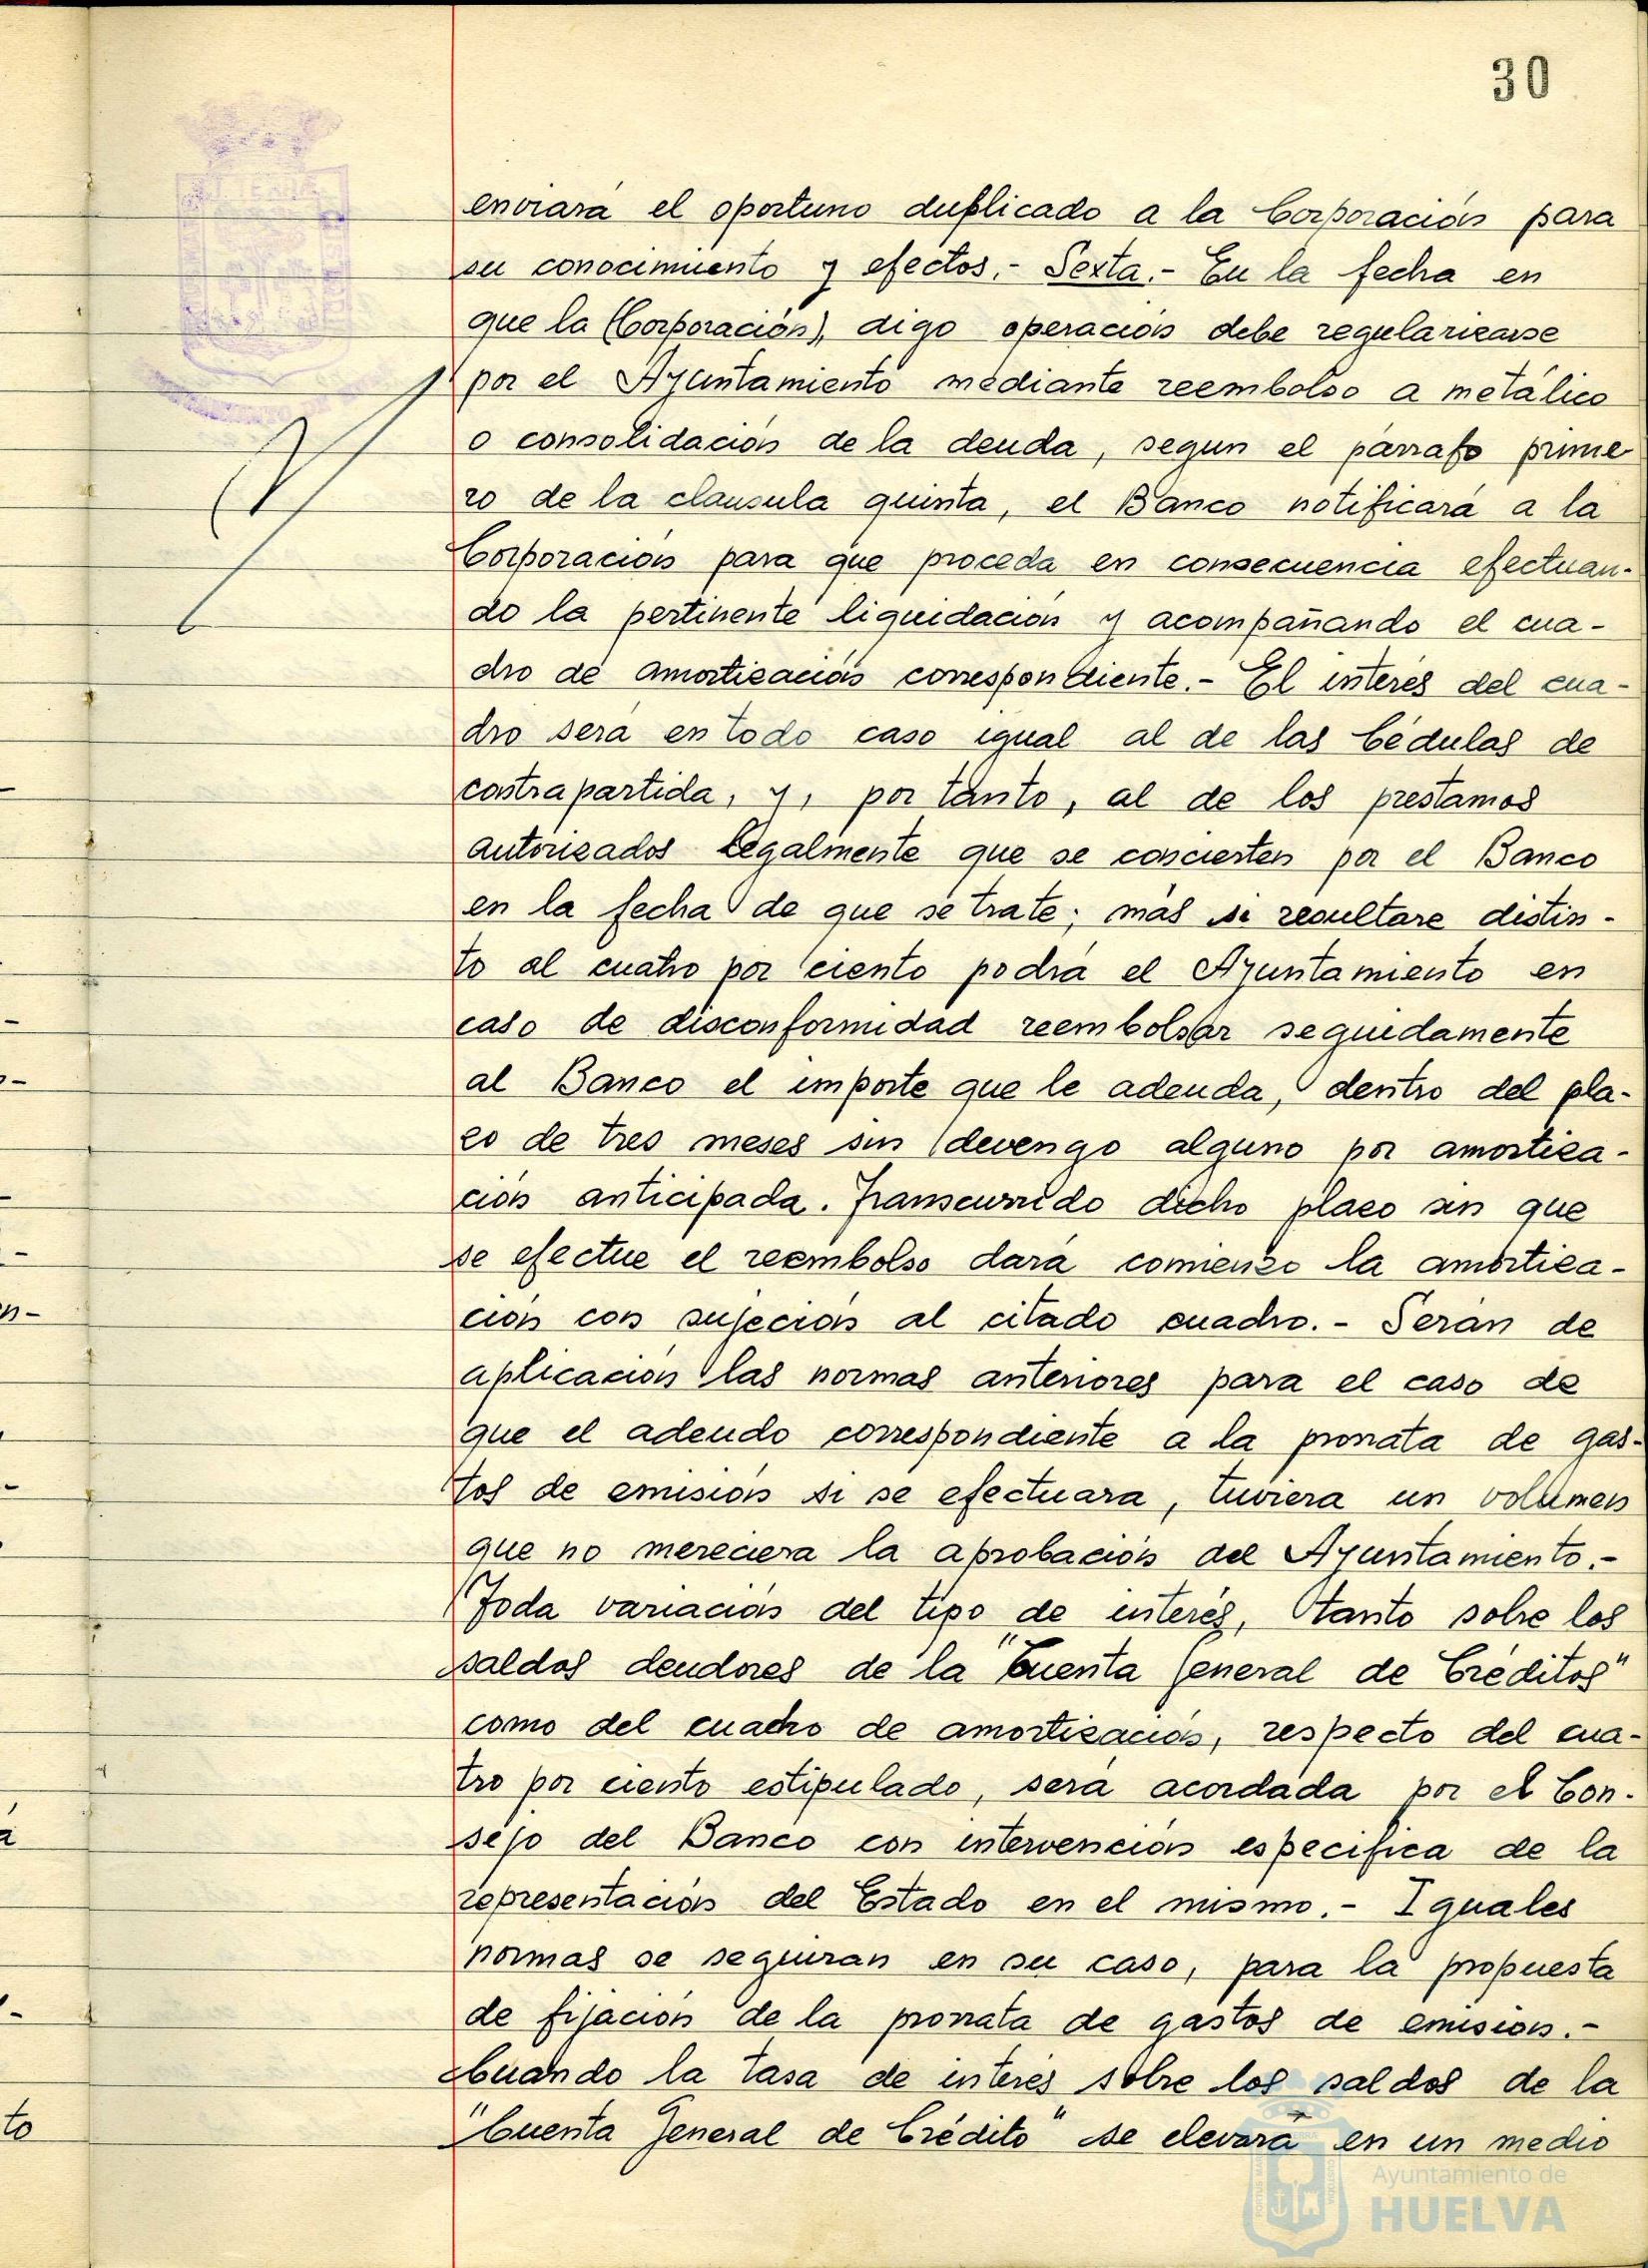 30
enviará el oportuno duplicado a la Corporación para
su conocimiento y efectos.- Sexta.- En la fecha en
que la (Corporación), digo operación debe regularizarse
por el Ayuntamiento mediante reembolso a metálico
o consolidación de la deuda, segun el párrafo prime-
ro de la clausula quinta, el Banco notificará a la
Corporación para que proceda en consecuencia efectuan-
do la pertinente liquidación y acompañando el cua-
dro de amortización correspondiente.- El interés del cua-
dro será en todo caso igual al de las Cédulas de
contrapartida, y, por tanto, al de los prestamos
autorizados legalmente que se concierten por el Banco
en la fecha de que se trate; más si resultare distin-
to al cuatro por ciento podrá el Ayuntamiento en
caso de disconformidad reembolsar seguidamente
al Banco el importe que le adeuda, dentro del pla-
zo de tres meses sin devengo alguno por amortiza-
ción anticipada. Transcurrido dicho plazo sin que
se efectue el reembolso dará comienzo la amortiza-
ción con sujeción al citado cuadro.- Serán de
aplicación las normas anteriores para el caso de
que el adeudo correspondiente a la prorrata de gas-
tos de emisión si se efectuara, tuviera un volumen
que no mereciera la aprobación del Ayuntamiento.-
Toda variación del tipo de interés, tanto sobre los
saldos deudores de la "Cuenta General de Créditos"
como del cuadro de amortización, respecto del cua-
tro por ciento estipulado, será acordada por el Con-
sejo del Banco con intervención especifica de la
representación del Estado en el mismo.- Iguales
normas se seguiran en su caso, para la propuesta
de fijación de la prorrata de gastos de emisión.-
Cuando la tasa de interés sobre los saldos de la
"Cuenta General de Crédito" se elevará en un medio
Ayuntamiento de
HUELVA